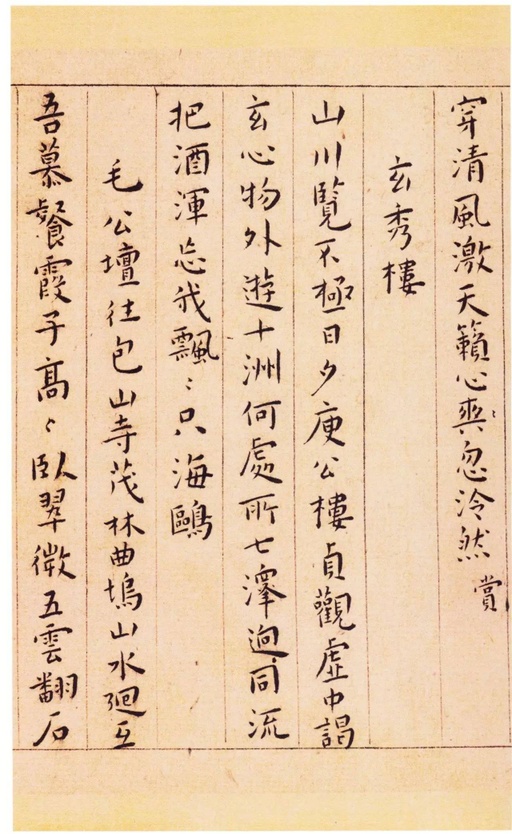 穿清風激天籟心爽忽泠然賞
玄秀樓
山川覽不極日夕庾公樓貞觀虛中謁
玄心物外遊十洲何處所七澤迥同流
把酒渾忘我飄〻只海鷗
毛公壇往包山寺茂林曲塢山水迴互
吾慕餐霞子高〻臥翠微五雲翻石